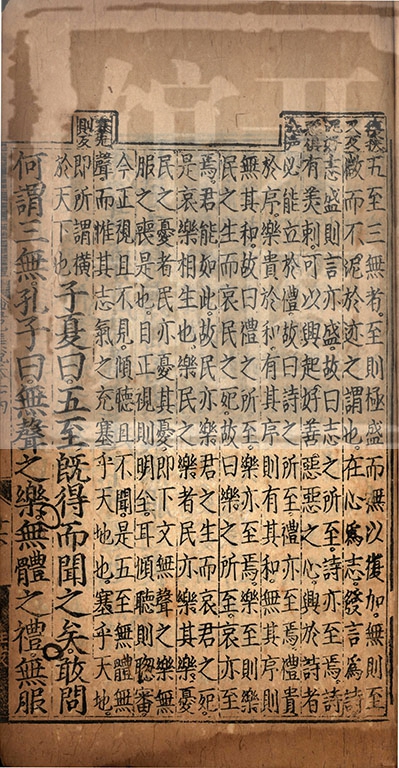 復扶
又反
五至三無者。至則極盛而無以復加。無則至
微而不泥於迹之謂也。在心爲志。發言爲詩。
志盛則言亦盛。故曰志之所至。詩亦至焉。詩
有美刺。可以興起好善惡惡之心。興於詩者
必能立於禮。故曰詩之所至禮亦至焉。禮貴
於序。樂貴於和。有其序則有其和。無其序則
無其和。故曰禮之所至。樂亦至焉。樂則樂
民之生而哀民之死。故曰樂之所至。哀亦至
焉。君能如此。故民亦樂君之生而哀君之死。
是哀樂相生也。樂民之樂者民亦樂其樂。憂
民之憂者。民亦憂其憂。即下文無聲之樂無
服之喪是也。目正視則明全。耳傾聽則聰審
今正視且不見。傾聽且不聞。是五至無體無
聲而惟其志氣之充塞乎天地也。塞乎天地。
塞先
則反
即所謂橫
於天下也
子夏曰。五至既得而聞之矣。敢問
何謂三無。孔子曰。無聲之樂無體之禮無服